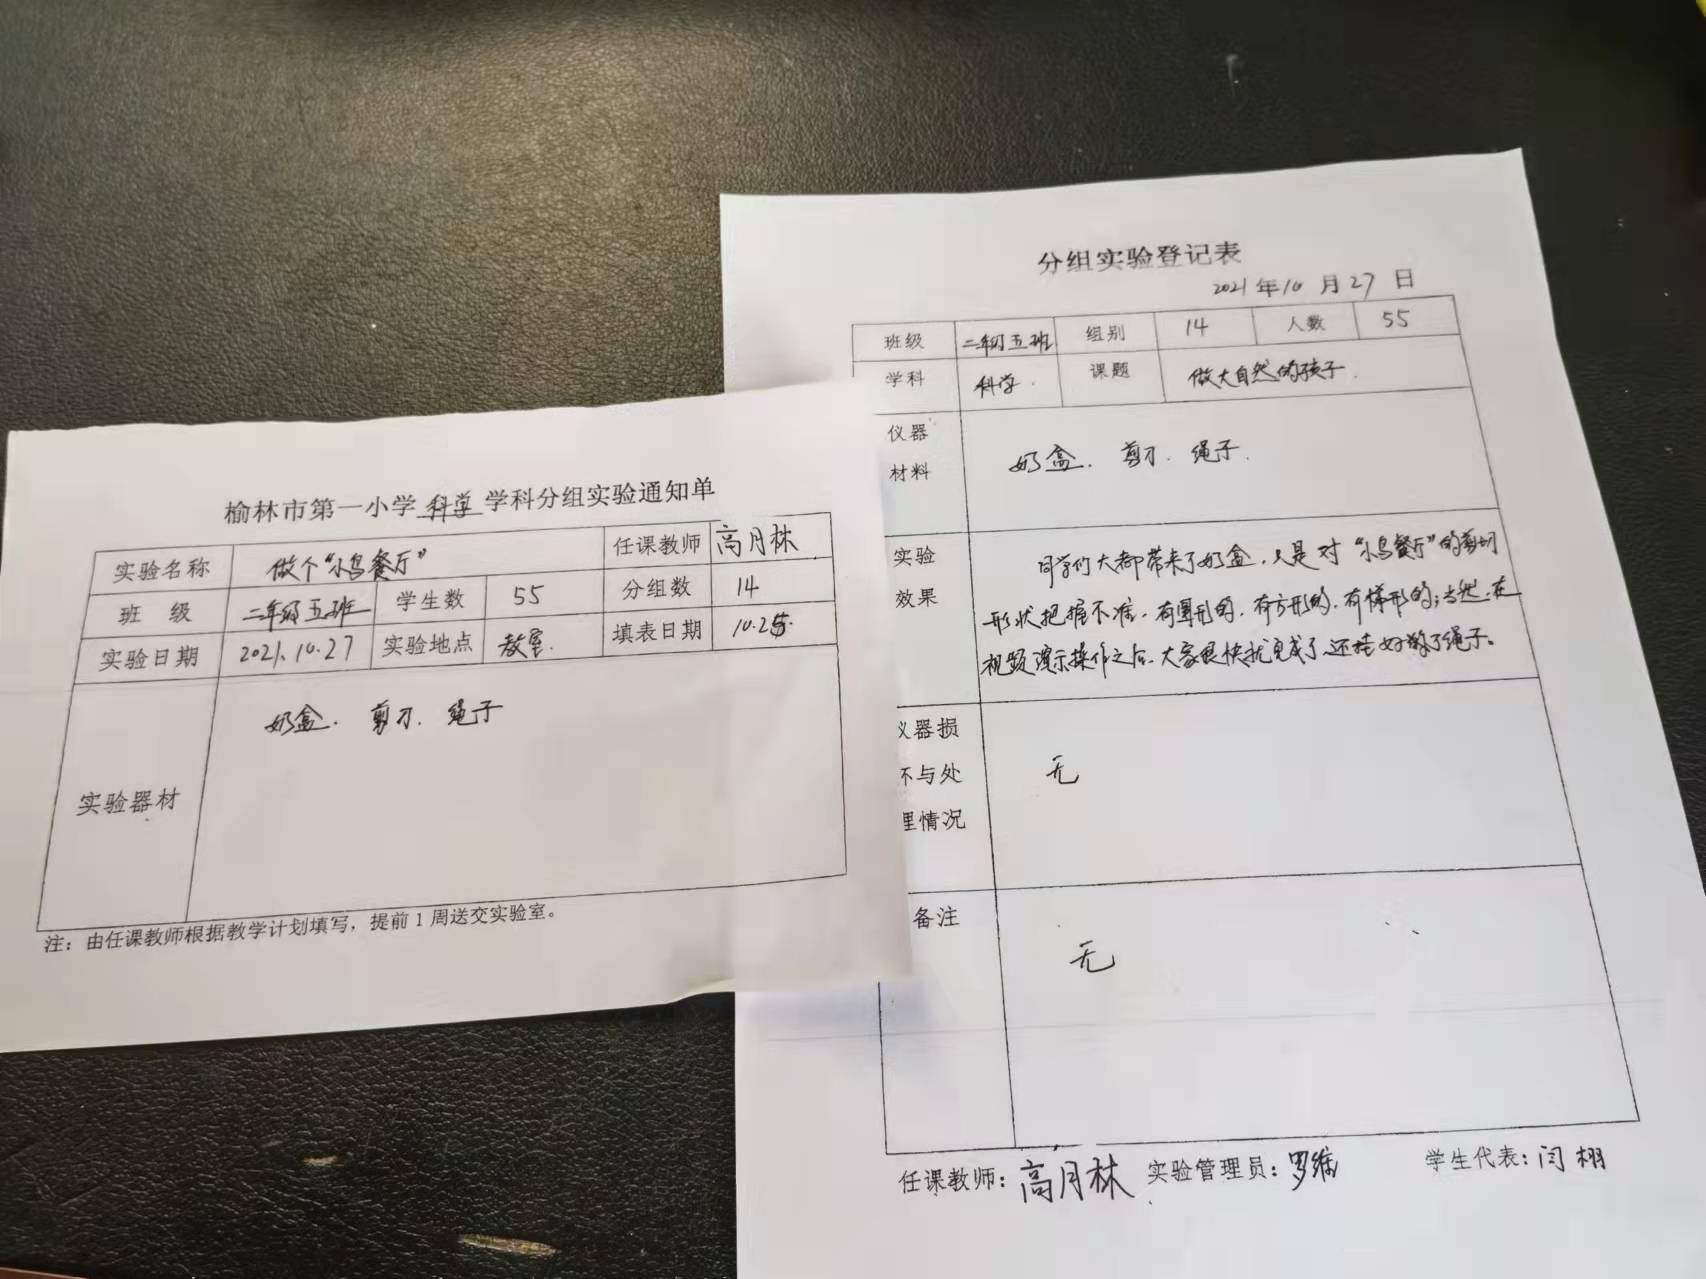 榆林市第一小学科学学科分组实验通知单
实验名称 做个“小鸟餐厅” 任课教师 高月林
班 级 二年级五班 学生数 55 分组数 14
实验日期 2021.10.27 实验地点 教室 填表日期 10.25
实验器材 奶盒、剪刀、绳子
注：由任课教师根据教学计划填写，提前1周送交实验室。
分组实验登记表
2021年10月27日
班级 二年级五班 组别 14 人数 55
学科 科学 课题 做大自然的孩子
仪器
材料
奶盒、剪刀、绳子
实验
效果
同学们大都带来了奶盒，只是对“小鸟餐厅”的剪切
形状把握不准，有圆形的，有方形的，有梯形的；当然，在
视频演示操作之后，大家很快就完成了，还挂好了绳子。
仪器损
坏与处
理情况
无
备注
无
任课教师：高月林 实验管理员：罗维 学生代表：闫栩